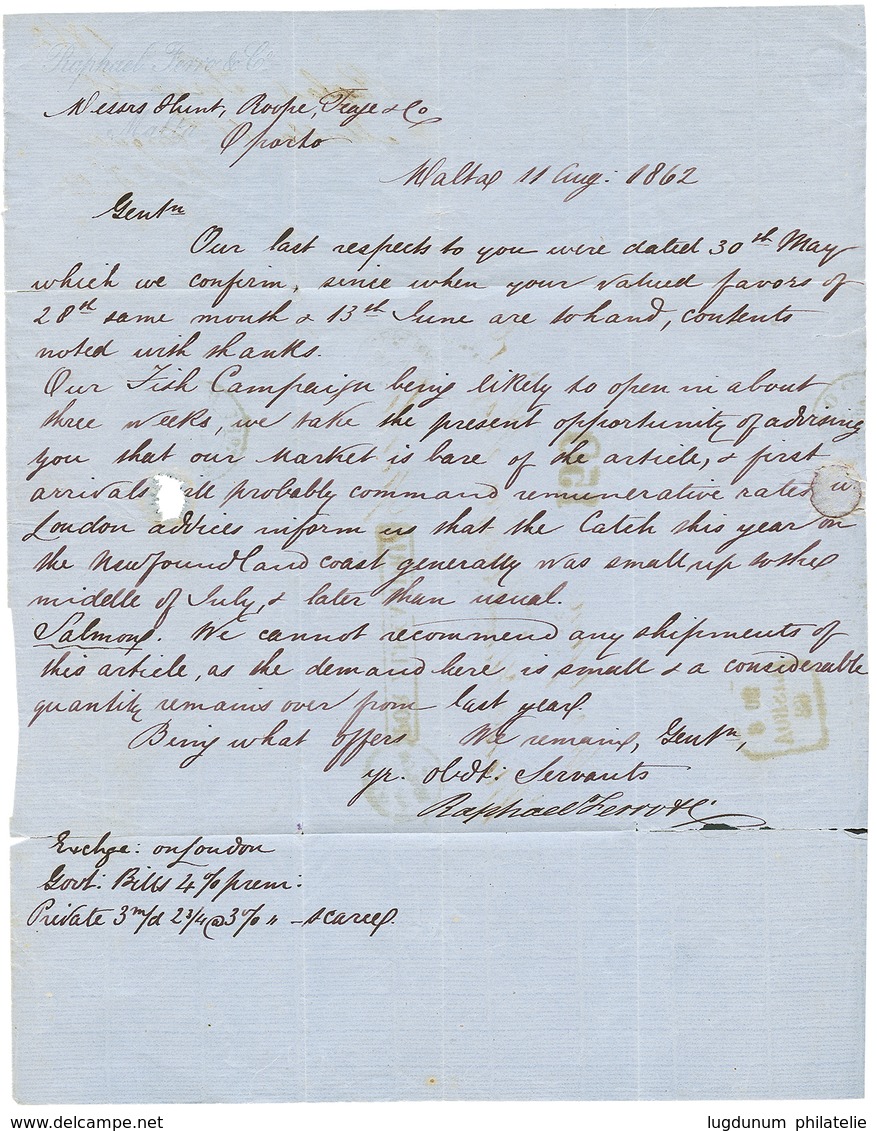 Raphael Ferro & Co
Malta
Messrs Hunt, Roope, Teage & Co
Oporto
Malta 11 Aug: 1862
Gentn
Our last respects to you were dated 30th May
which we confirm, since when your valued favors of
28th same month & 13th June are to hand, contents
noted with thanks.
Our Fish Campaign being likely to open in about
three weeks, we take the present opportunity of advising
you that our Market is bare of the article, & first
arrivals ll probably command remunerative rates
London advices inform us that the Catch this year on
the Newfoundland coast generally was small up to the
middle of July, & later than usual.
Salmon. We cannot recommend any shipments of
this article, as the demand here is small & a considerable
quantity remains over from last year
Being what offers We remain, Gentn,
yr. obdt: Servants
Raphael Ferro & Co
Exchge: on London
Govt: Bills 4% prem:
Private 3 m/d 2 3/4 @ 3% " - scarce.
lugdunum philatelie